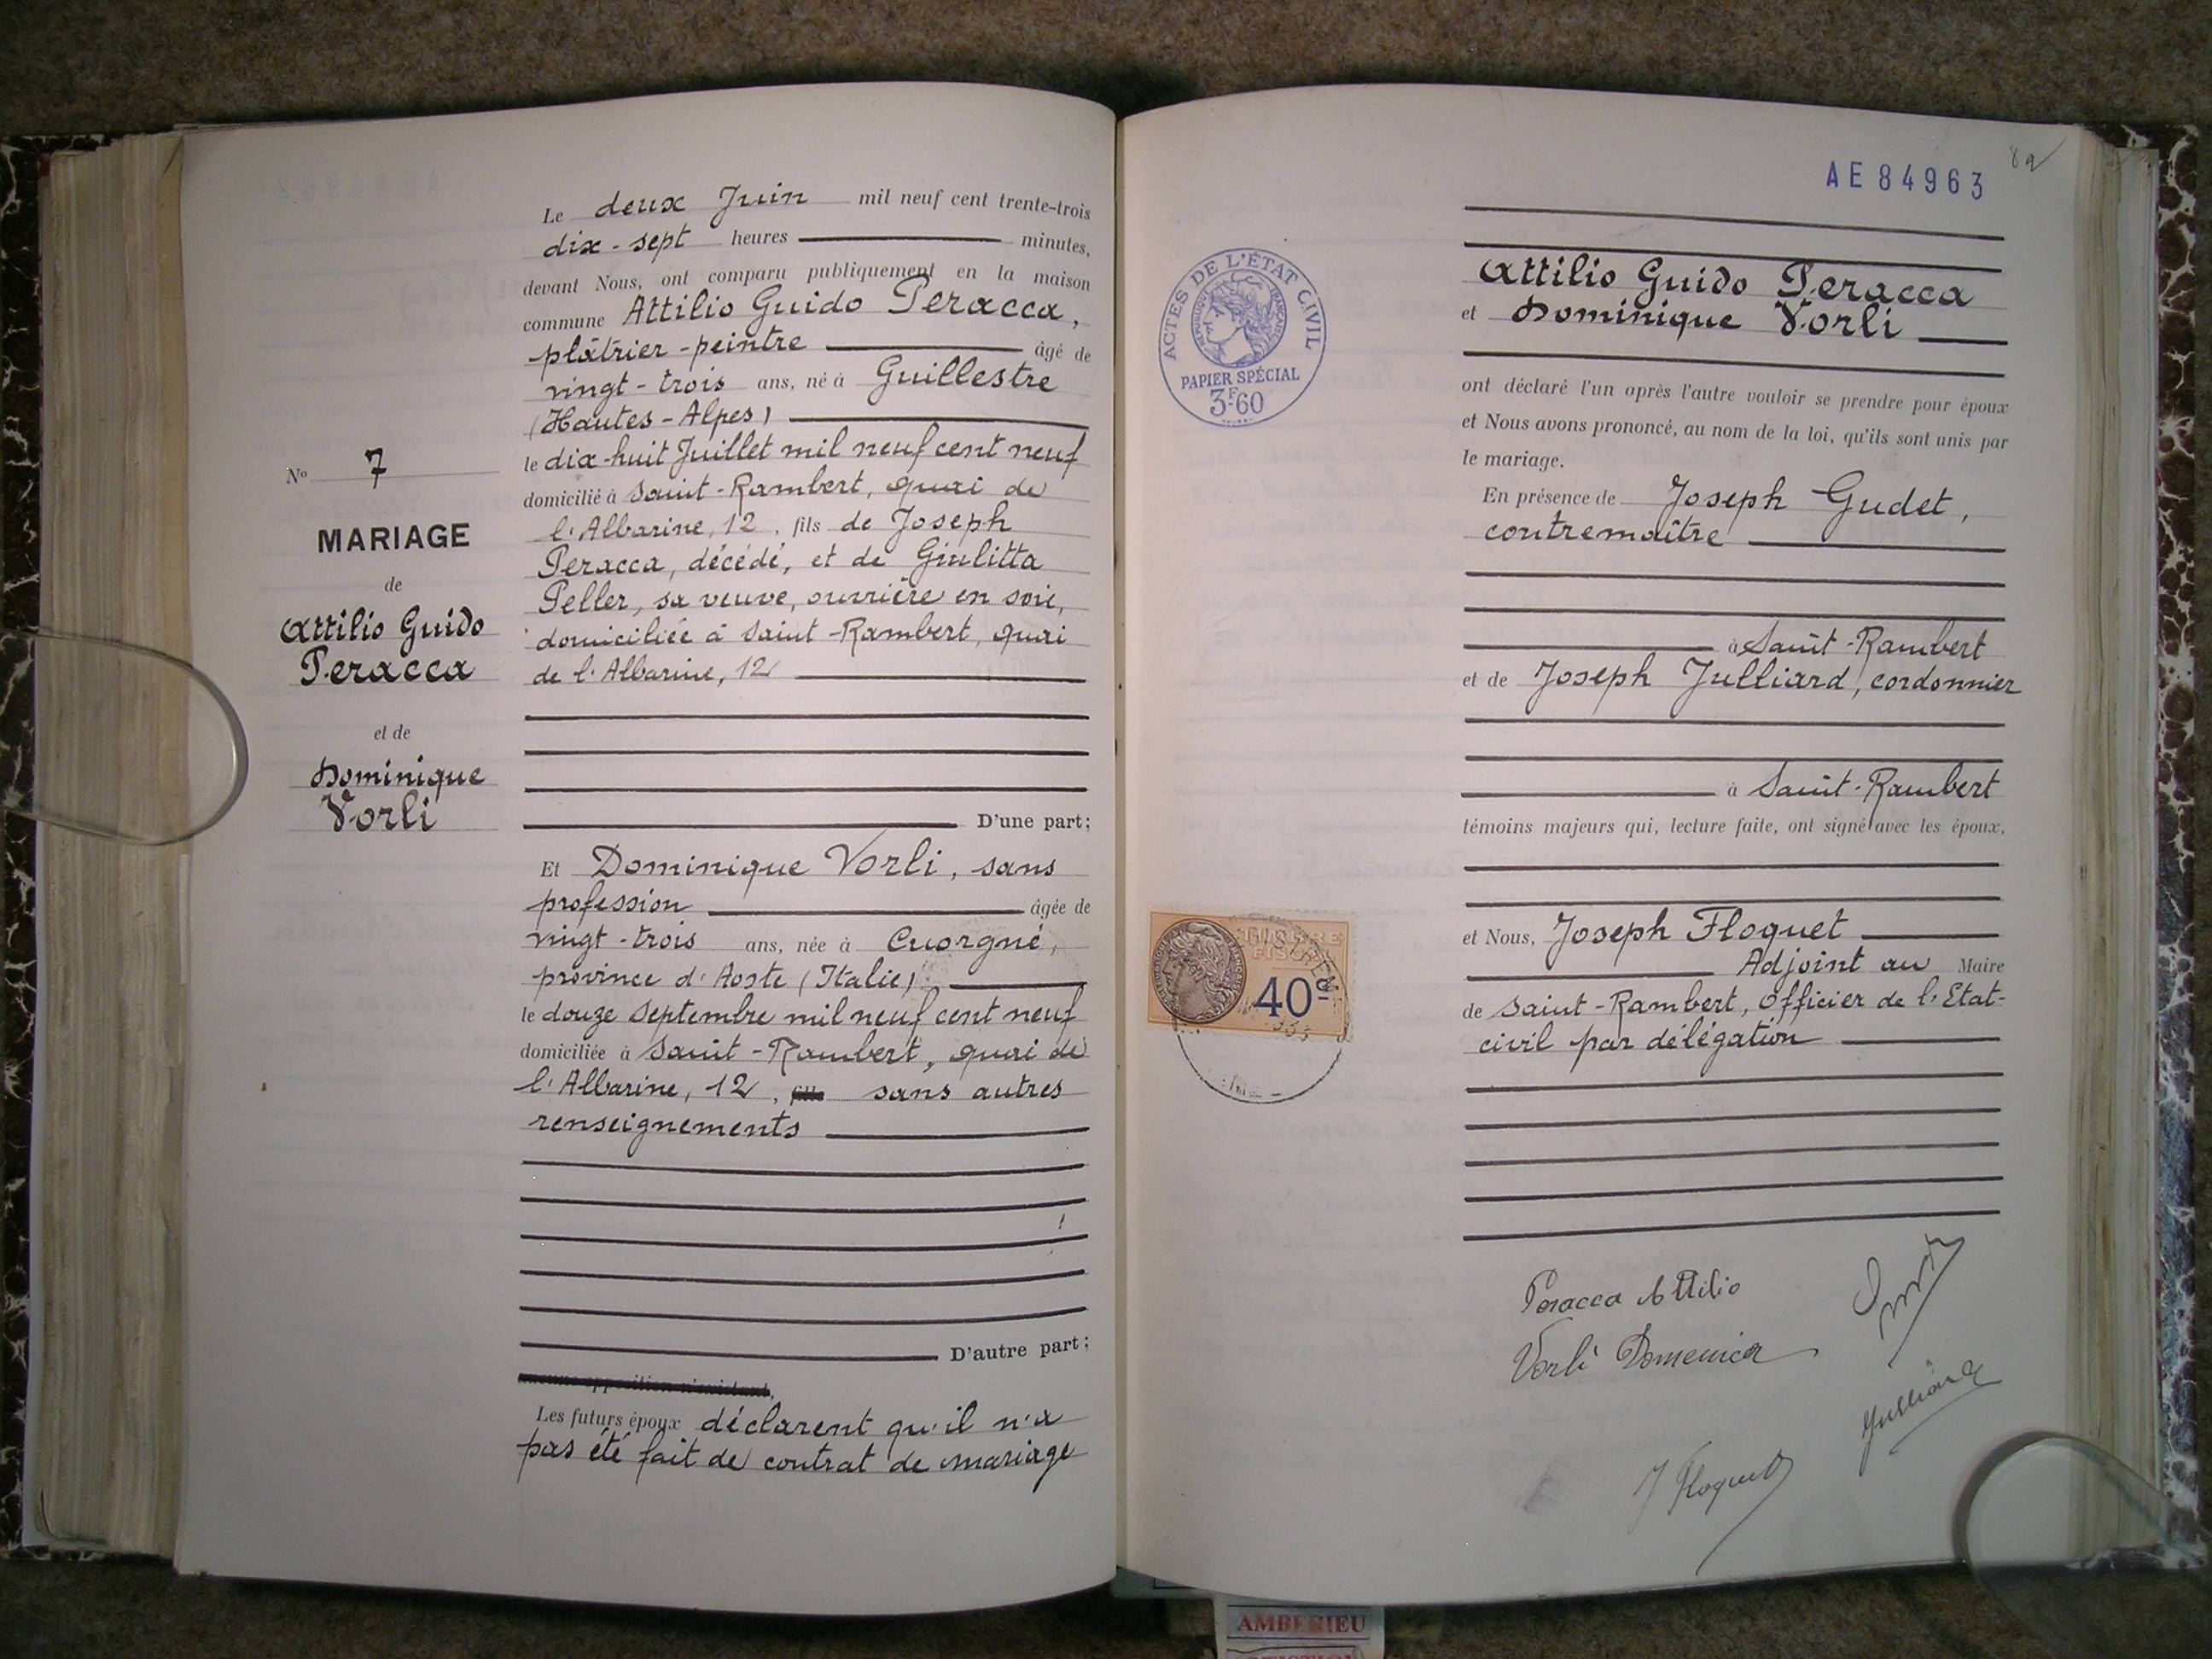 Le deux Juin mil neuf cent trente-trois
dix-sept heures minutes,
devant Nous, ont comparu publiquement en la maison
commune Attilio Guido Peracca,
plâtrier-peintre âgé de
vingt-trois ans, né à Guillestre
(Hautes-Alpes)
le dix-huit Juillet mil neuf cent neuf
domicilié à Saint-Rambert, quai de
l'Albarine, 12, fils de Joseph
Peracca, décédé, et de Giulitta
Peller, sa veuve, ouvrière en soie,
domiciliée à Saint-Rambert, quai
de l'Albarine, 12
D'une part;
N° 7
MARIAGE
de
Attilio Guido
Peracca
et de
Dominique
Vorli
Et Dominique Vorli, sans
profession âgée de
vingt-trois ans, née à Cuorgné,
province d'Aoste (Italie)
le douze Septembre mil neuf cent neuf
domiciliée à Saint-Rambert, quai de
l'Albarine, 12, fille sans autres
renseignements
D'autre part;
Les futurs époux déclarent qu'il n'a
pas été fait de contrat de mariage
AE84963
ACTES DE L'ÉTAT CIVIL
RÉPUBLIQUE FRANÇAISE
PAPIER SPÉCIAL
3F60
Attilio Guido Peracca
et Dominique Vorli
ont déclaré l'un après l'autre vouloir se prendre pour époux
et Nous avons prononcé, au nom de la loi, qu'ils sont unis par
le mariage.
En présence de Joseph Gudet,
contremaître
à Saint-Rambert
et de Joseph Julliard, cordonnier
à Saint-Rambert
témoins majeurs qui, lecture faite, ont signé avec les époux,
et Nous, Joseph Floquet
Adjoint au Maire
de Saint-Rambert, Officier de l'Etat-
civil par délégation
TIMBRE
FISCAL
40c
Peracca Attilio
Vorli Domenica
Julliard
J Floquet
AMBERIEU